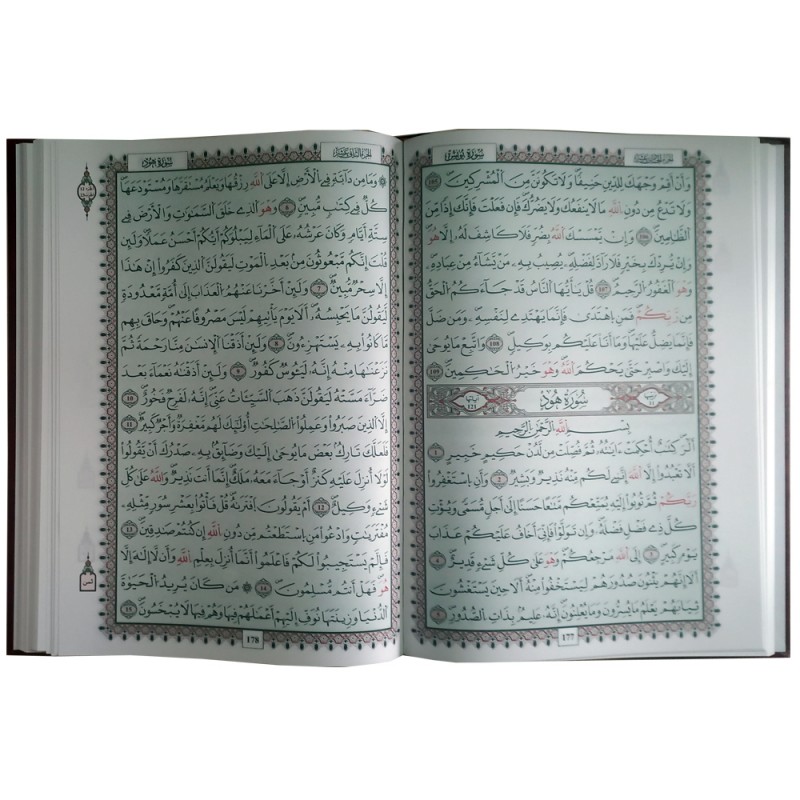 سورة يونس
وأن اقم وجهك للدين حنيفا ولا تكونن من المشركين 105
ولا تدع من دون الله ما لا ينفعك ولا يضرك فإن فعلت فإنك إذا من
الظالمين 106 وإن يمسسك الله بضر فلا كاشف له إلا هو
وإن يردك بخير فلا راد لفضله يصيب به من يشاء من عباده
وهو الغفور الرحيم 107 قل يأيها الناس قد جاءكم الحق
من ربكم فمن اهتدى فإنما يهتدي لنفسه ومن ضل
فإنما يضل عليها وما أنا عليكم بوكيل 108 واتبع ما يوحى
إليك واصبر حتى يحكم الله وهو خير الحكمين 109
سورة هود
121
بسم الله الرحمن الرحيم
ألر كتب أحكمت ءايته ثم فصلت من لدن حكيم خبير 1
ألا تعبدوا إلا الله إنني لكم منه نذير وبشير 2 وأن استغفروا
ربكم ثم توبوا إليه يمتعكم متعا حسنا إلى أجل مسمى ويوت
كل ذي فضل فضله وإن تولوا فإني أخاف عليكم عذاب
يوم كبير 3 إلى الله مرجعكم وهو على كل شيء قدير 4
ألا إنهم يثنون صدورهم ليستخفوا منه ألا حين يستغشون
ثيابهم يعلم ما يسرون وما يعلنون إنه عليم بذات الصدور 5
177
سورة هود
وما من دابة في الأرض إلا على الله رزقها ويعلم مستقرها ومستودعها
كل في كتب مبين 6 وهو الذي خلق السموت والأرض في
ستة أيام وكان عرشه على الماء ليبلوكم أيكم أحسن عملا ولين
قلت إنكم مبعوثون من بعد الموت ليقولن الذين كفروا إن هذا
إلا سحر مبين 7 ولين أخرنا عنهم العذاب إلى أمة معدودة
ليقولن ما يحبسه ألا يوم ياتيهم ليس مصروفا عنهم وحاق بهم
ما كانوا به يستهزءون 8 ولين أذقنا الانسن منا رحمة ثم
نزعنها منه إنه ليئوس كفور 9 ولين أذقنه نعماء بعد
ضراء مسته ليقولن ذهب السيئات عني إنه لفرح فخور 10
إلا الذين صبروا وعملوا الصلحت أوليك لهم مغفرة وأجر كبير 11
فلعلك تارك بعض ما يوحى إليك وضايق به صدرك أن يقولوا
لولا أنزل عليه كنز أو جاء معه ملك إنما أنت نذير والله على كل
شيء وكيل 12 أم يقولون افتريه قل فاتوا بعشر سور مثله
مفتريت وادعوا من استطعتم من دون الله إن كنتم صدقين 13
فإلم يستجيبوا لكم فاعلموا أنما أنزل بعلم الله وأن لا إله إلا
هو فهل أنتم مسلمون 14 من كان يريد الحيوة
الدنيا وزينتها نوف إليهم أعملهم فيها وهم فيها لا يبخسون 15
ثمن
178